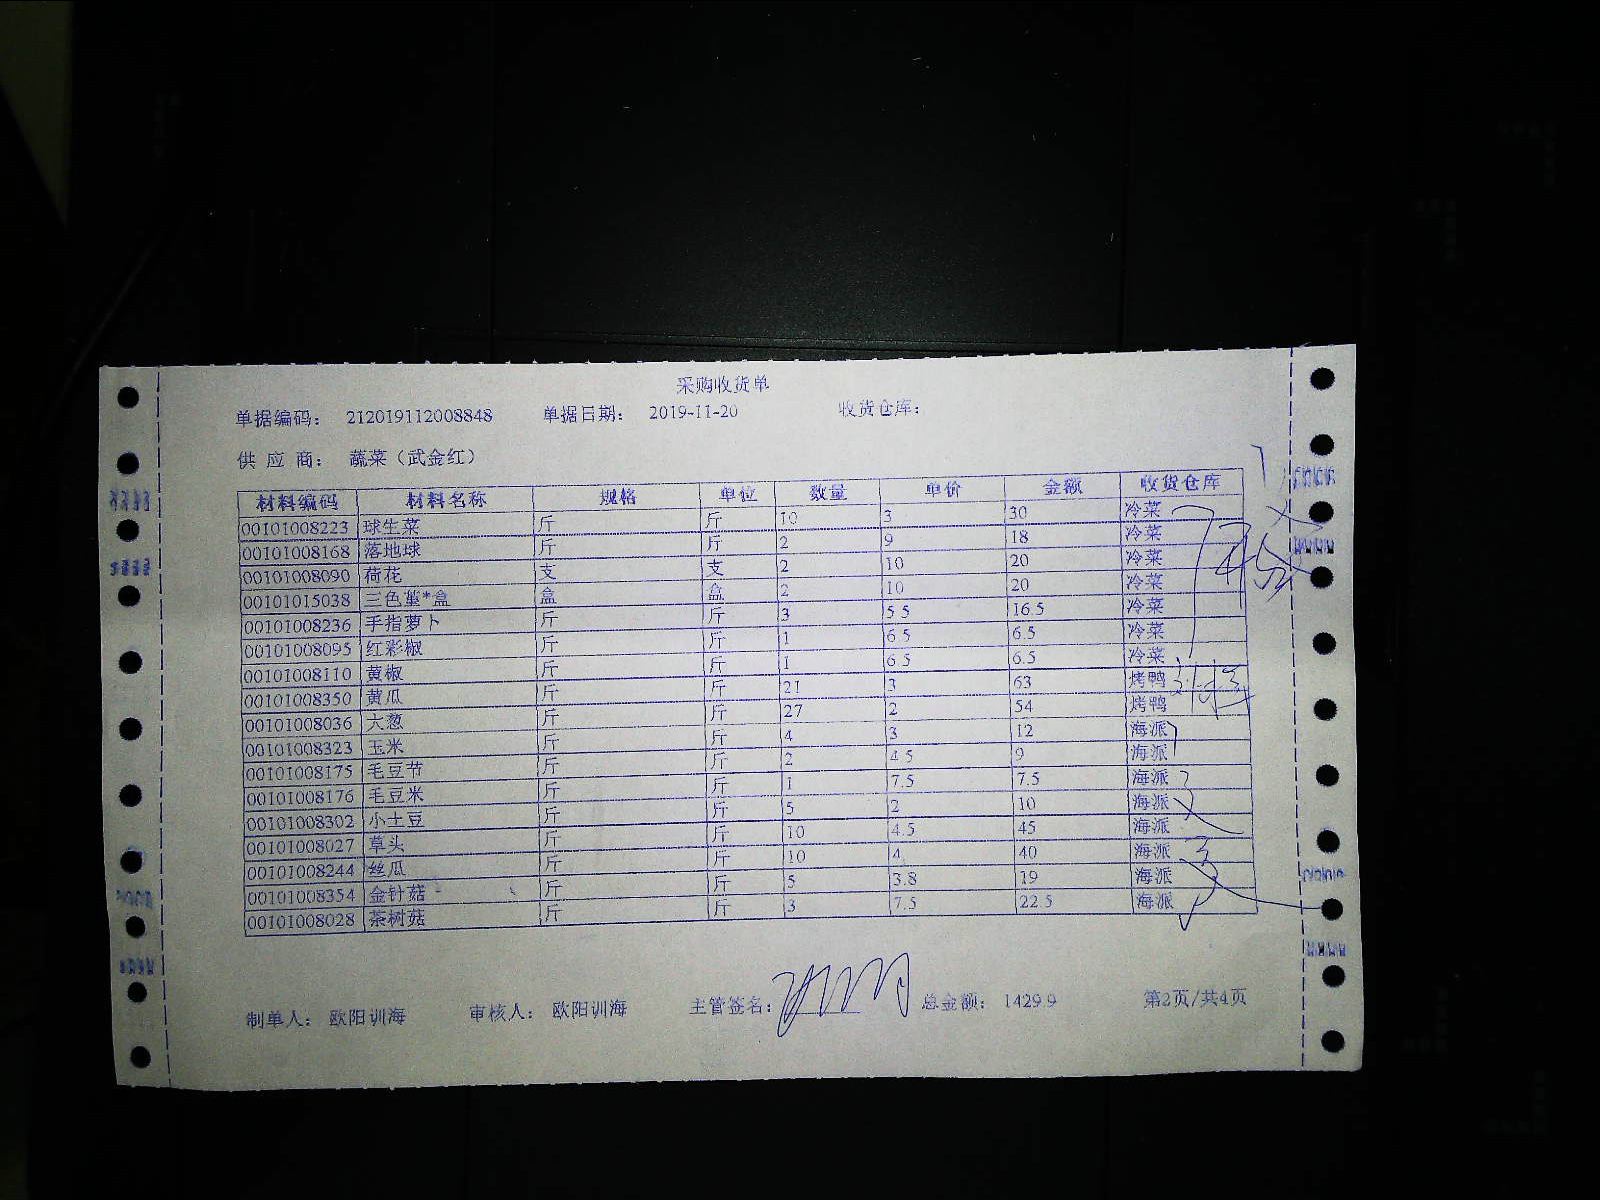 采购收货单
单据编码： 212019112008848 单据日期： 2019-11-20 收货仓库：
供 应 商： 蔬菜（武金红）
材料编码 材料名称 规格 单位 数量 单价 金额 收货仓库
00101008223 球生菜 斤 斤 10 3 30 冷菜
00101008168 落地球 斤 斤 2 9 18 冷菜
00101008090 荷花 支 支 2 10 20 冷菜
00101015038 三色堇*盒 盒 盒 2 10 20 冷菜
00101008236 手指萝卜 斤 斤 3 5.5 16.5 冷菜
00101008095 红彩椒 斤 斤 1 6.5 6.5 冷菜
00101008110 黄椒 斤 斤 1 6.5 6.5 冷菜
00101008350 黄瓜 斤 斤 21 3 63 烤鸭
00101008036 大葱 斤 斤 27 2 54 烤鸭
00101008323 玉米 斤 斤 4 3 12 海派
00101008175 毛豆节 斤 斤 2 4.5 9 海派
00101008176 毛豆米 斤 斤 1 7.5 7.5 海派
00101008302 小土豆 斤 斤 5 2 10 海派
00101008027 草头 斤 斤 10 4.5 45 海派
00101008244 丝瓜 斤 斤 10 4 40 海派
00101008354 金针菇 斤 斤 5 3.8 19 海派
00101008028 茶树菇 斤 斤 3 7.5 22.5 海派
制单人： 欧阳训海 审核人： 欧阳训海 主管签名： 总金额： 1429.9 第2页/共4页